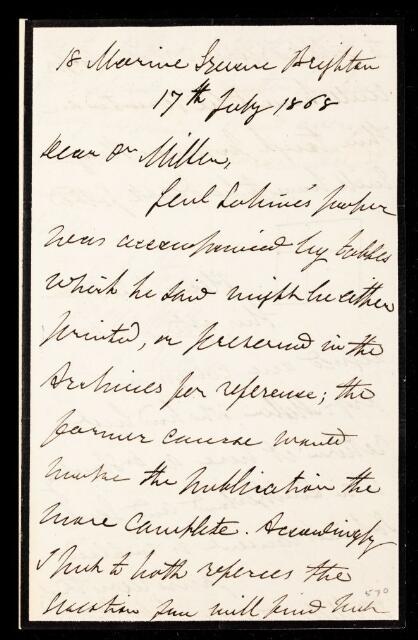 18 Marine Square Brighton
17th July 1868
Dear Dr Miller,
Genl Sabine's paper
was accompanied by tables
which he said might be either
printed, or preserved in the
Archives for reference; the
former course would
make the publication the
more complete. Accordingly
I put to both referees the
question you will find
570